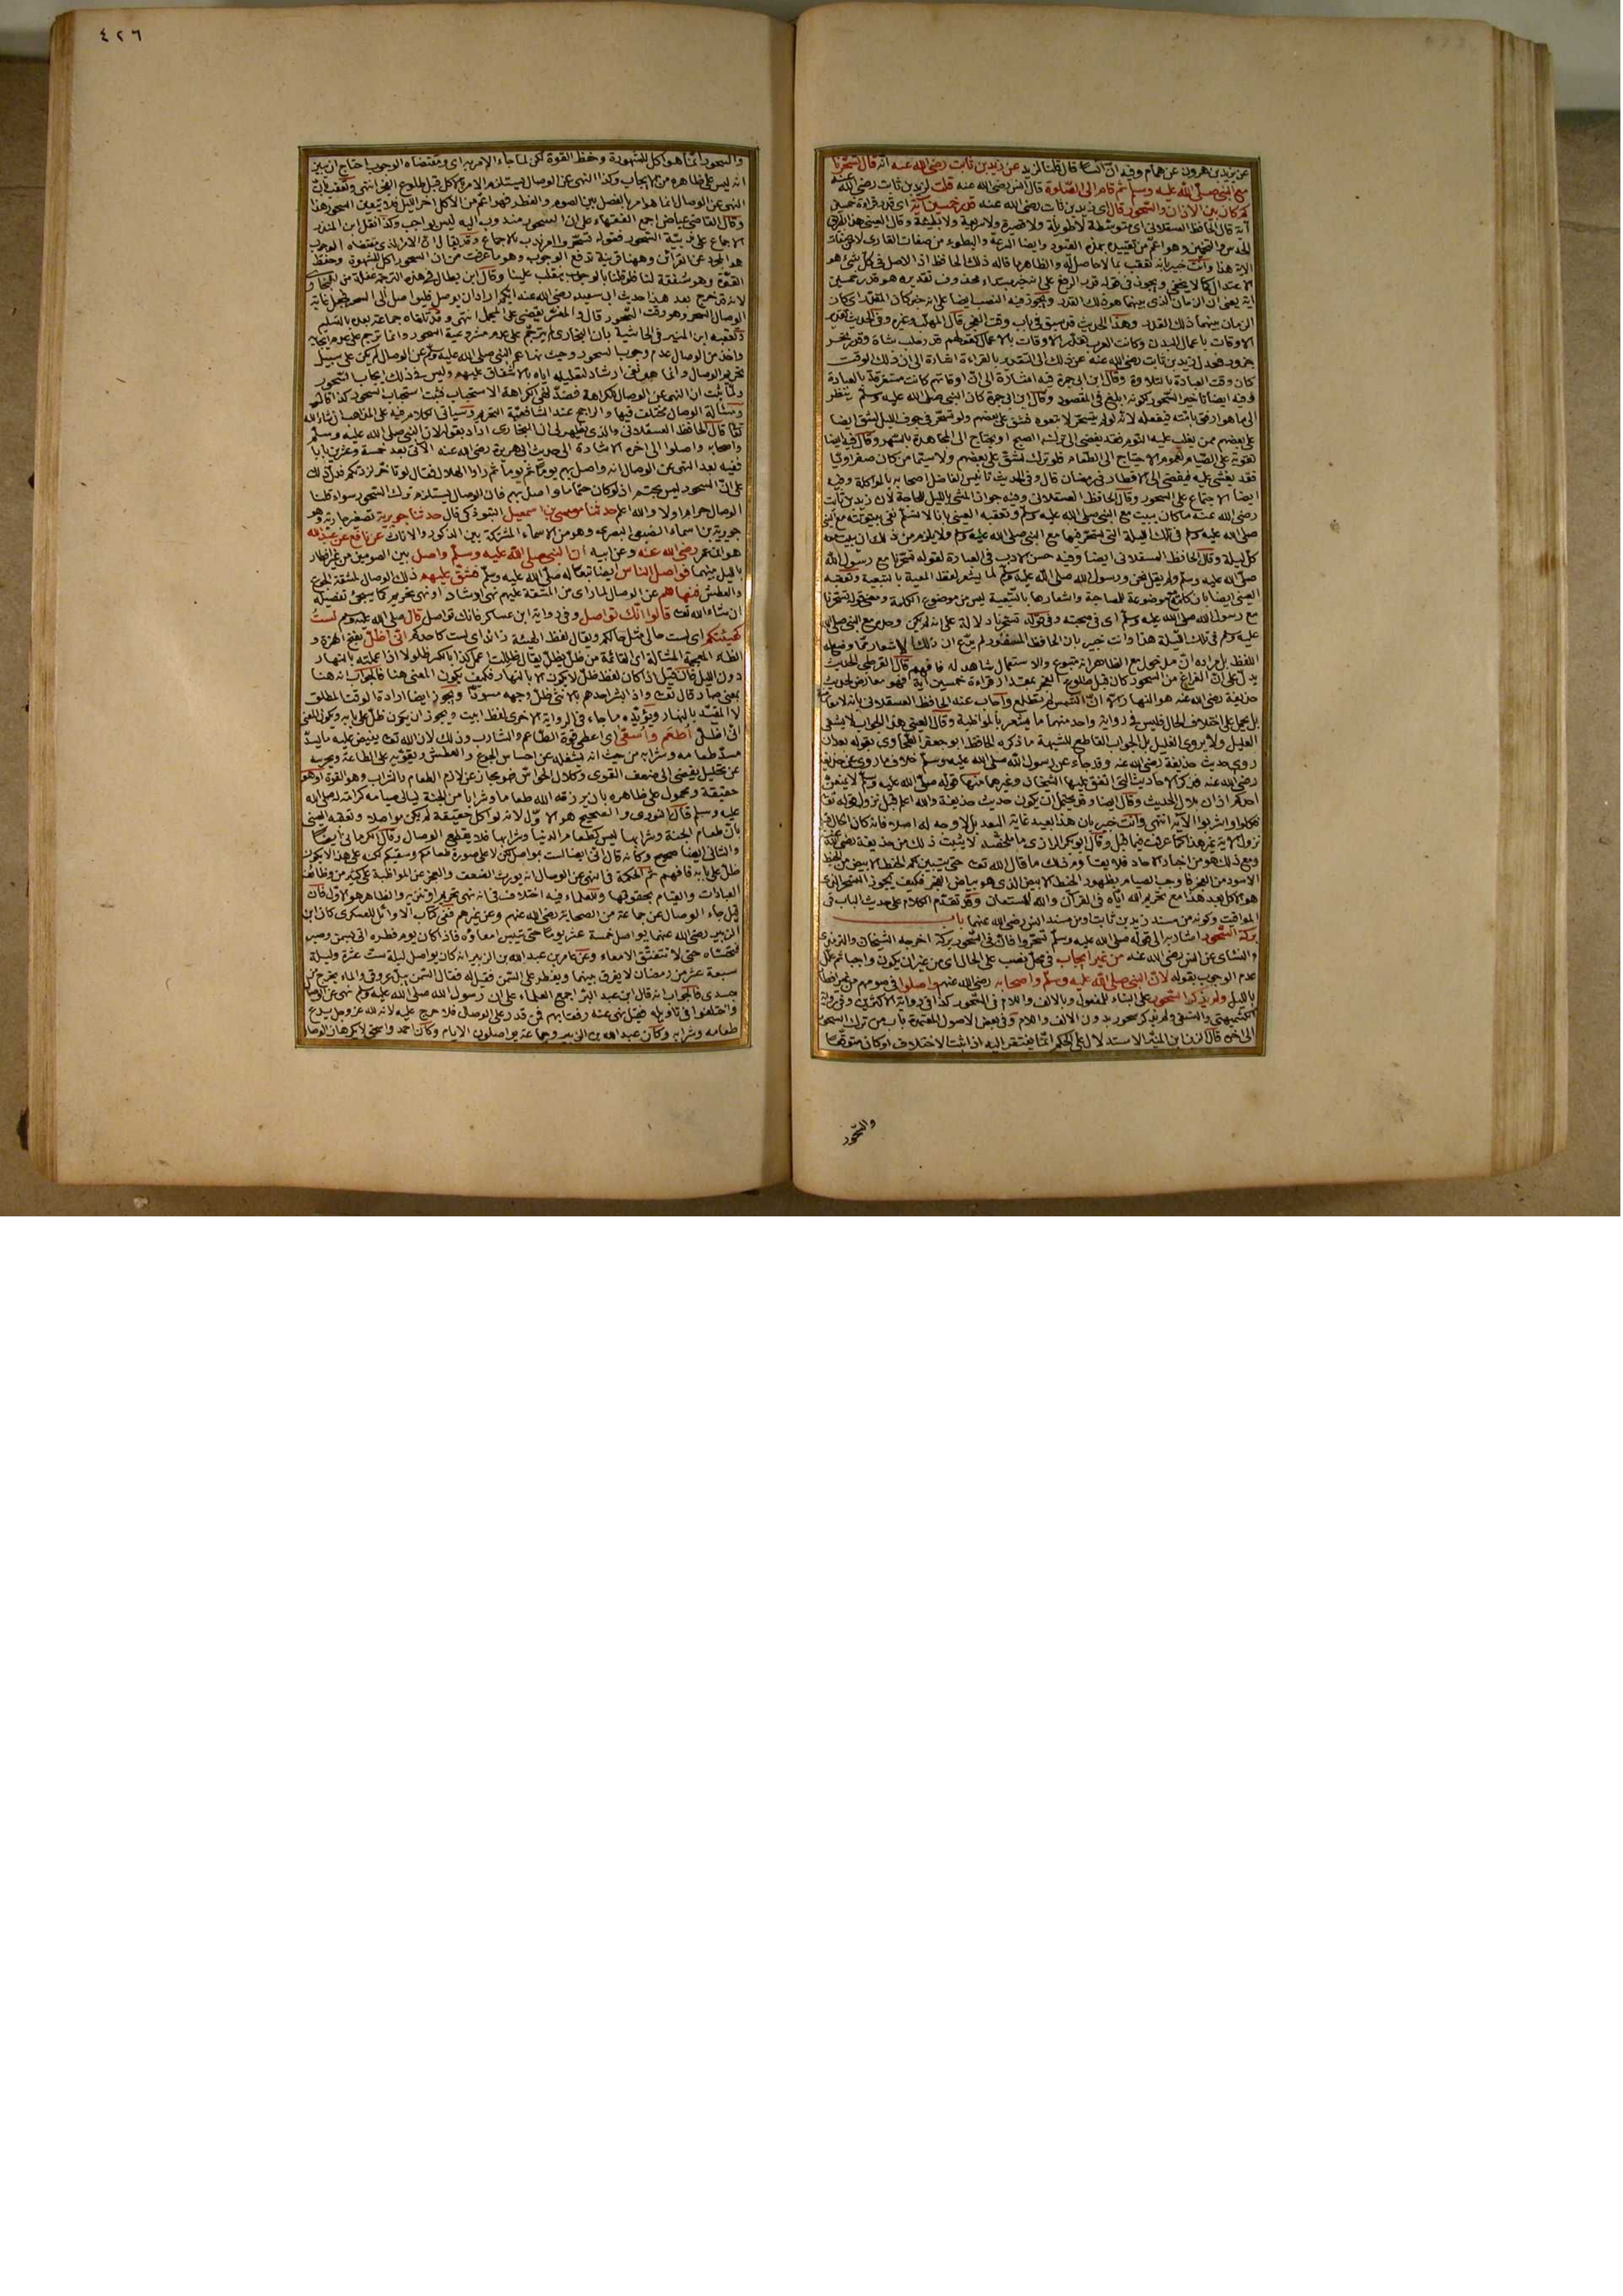 عن يزيد بن هرون عن همام وفيه ان انسا قال قلنا لزيد عن زيد بن ثابت رضى الله عنه انه قال تسحرنا
مع النبى صلى الله عليه وسلم ثم قام الى الصلوة قال انس رضى الله عنه قلت لزيد بن ثابت رضى الله عنه
كم كان بين الاذان والسحور قال اى زيد بن ثابت رضى الله عنه قدر خمسين آية اى قدر قراءة خمسين
آية قال الحافظ العسقلانى اى متوسطة لا طويلة ولا قصيرة ولا سريعة ولا بطيئة وقال العينى هذا
الاية هذا وانت خبير بانه تعقب بما لا حاصل له والظاهر ما قاله ذلك الحافظ اذ الاصل فى كل شئ هو
الاعتدال كما لا يخفى ويجوز فى قوله قدر الرفع على انه خبر مبتداء محذوف تقديره هو قدر خمسين
اية يعنى ان الزمان الذى بينهما هو ذلك القدر ويجوز فيه النصب ايضا على انه خبر كان المقدر اى كان
الزمان بينهما ذلك القدر وهذا الحديث قد سبق فى باب وقت الفجر قال المهلب وغيره وفى الحديث تقدير
الاوقات باعمال البدن وكانت العرب تقدر الاوقات بالاعمال كقولهم قدر حلب شاة وقدر نحر
جزور فعدل زيد بن ثابت رضى الله عنه عن ذلك الى التقدير بالقراءة اشارة الى ان ذلك الوقت
كان وقت العبادة بالتلاوة وقال ابن ابى جمرة فيه اشارة الى ان اوقاتهم كانت مستغرقة بالعبادة
وفيه ايضا تاخير السحور لكونه ابلغ فى المقصود وقال ابن ابى جمرة كان النبى صلى الله عليه وسلم ينظر
الى ما هو ارفق بامته فيفعله لانه لو لم يتسحر لاتبعوه فشق على بعضهم ولو تسحر فى جوف الليل لشق ايضا
على بعضهم ممن يغلب عليه النوم فقد يفضى الى ترك الصبح او يحتاج الى المجاهدة بالسهر وقال فيه ايضا
تقوية على الصيام لعموم الاحتياج الى الطعام فلو ترك لشق على بعضهم ولا سيما من كان صفراويا
فقد يغشى عليه فيفضى الى الافطار فى رمضان قال وفى الحديث تانيس الفاضل اصحابه بالمواكلة وفيه
ايضا الاجتماع على السحور وقال الحافظ العسقلانى وفيه جواز المشى بالليل للحاجة لان زيد بن ثابت
رضى الله عنه ما كان يبيت مع النبى صلى الله عليه وسلم وتعقبه العينى بانا لا نسلم نفى بيتوتته مع النبى
صلى الله عليه وسلم فى تلك الليلة التى تسحر فيها مع النبى صلى الله عليه وسلم ولا يلزم من ذلك ان يبيت معه
كل ليلة وقال الحافظ العسقلانى ايضا وفيه حسن الادب فى العبارة لقوله تسحرنا مع رسول الله
صلى الله عليه وسلم ولم يقل نحن ورسول الله صلى الله عليه وسلم لما يشعر لفظ المعية بالتبعية وتعقبه
العينى ايضا بان كلمة مع موضوعة للمصاحبة واشعارها بالتبعية ليس من موضوع الكلمة ومعنى قوله تسحرنا
مع رسول الله صلى الله عليه وسلم اى فى صحبته وفى قوله تسحرنا دلالة على انه لم يكن وحده مع النبى صلى الله
عليه وسلم فى تلك الليلة هذا وانت خبير بان الحافظ العسقلانى لم يدع ان ذلك الاشعار مما وضع له
اللفظ بل مراده ان مدخول مع الظاهر انه متبوع والاستعمال شاهد له فافهم قال القرطبى الحديث
يدل على ان الفراغ من السحور كان قبل طلوع الفجر بمقدار قراءة خمسين آية فهو معارض لحديث
حذيفة رضى الله عنه هو النهار الا ان الشمس لم تطلع واجاب عنه الحافظ العسقلانى بانه لا معارضة
بل يحمل على اختلاف الحال فليس فى رواية واحد منهما ما يشعر بالمواظبة وقال العينى هذا الجواب لا يشفى
العليل ولا يروى الغليل بل الجواب القاطع للشبهة ما ذكره الحافظ ابو جعفر الطحاوى بقوله بعد ان
روى حديث حذيفة رضى الله عنه وقد جاء عن رسول الله صلى الله عليه وسلم خلاف ما روى عن حذيفة
رضى الله عنه فذكر الاحاديث التى اتفق عليها الشيخان وغيرهما منها قوله صلى الله عليه وسلم لا يمنعن
احدكم اذان بلال الحديث وقال ايضا وقد يحتمل ان يكون حديث حذيفة والله اعلم قبل نزول قوله تعالى
فكلوا واشربوا الآية انتهى وانت خبير بان هذا بعيد غاية البعد بل لا وجه له اصلا
نزول الاية غير هذا كما عرفت فيما قبل وقال ابو بكر الرازى ما ملخصه لا يثبت ذلك من حذيفة رضى الله عنه
ومع ذلك هو من اخبار الاحاد فلا يعتبر ومع ذلك ما قال الله تعالى حتى يتبين لكم الخيط الابيض من الخيط
الاسود من الفجر فاوجب الصيام بظهور الخيط الابيض الذى هو بياض الفجر فكيف يجوز السحر الذى
هو الاكل بعد هذا مع تحريم الله اياه فى القرآن والله المستعان وقد تقدم الكلام على حديث الباب فى
المواقيت وكونه من مسند زيد بن ثابت او من مسند انس رضى الله عنهما باب
بركة السحور اشار به الى قوله صلى الله عليه وسلم تسحروا فان فى السحور بركة اخرجه الشيخان والترمذى
والنسائى عن انس رضى الله عنه من غير ايجاب فى محل نصب على الحال اى من غير ان يكون واجبا ثم علل
عدم الوجوب بقوله لان النبى صلى الله عليه وسلم واصحابه رضى الله عنهم واصلوا فى صومهم من غير افطار
بالليل ولم يذكروا السحور على البناء للمفعول وبالالف واللام فى السحور كذا فى رواية الاكثرين وفى رواية
الكشميهنى والنسفى ولم يذكر سحور بدون الالف واللام وفى بعض الاصول المعتمدة باب من ترك السحور
الى اخره قال الزين بن المنير الاستدلال على الحكم انما يفتقر اليه اذا ثبت الاختلاف او كان متوقعا
والسحور
٤٢٦
والسحور انما هو اكل للشهوة وحفظ القوة لكن لما جاء الامر به اى ومقتضاه الوجوب احتاج ان يبين
انه ليس على ظاهره من الايجاب وكذا النهى عن الوصال يستلزم الامر بالاكل قبل طلوع الفجر انتهى وتعقب بان
النهى عن الوصال انما هو امر بالفصل بين الصوم والفطر فهو اعم من الاكل اخر الليل فلا يتعين السحور هذا
وقال القاضى عياض اجمع الفقهاء على ان السحور مندوب اليه ليس بواجب وكذا نقل ابن المنذر
الاجماع على ندبية السحور فقوله تسحروا امر ندب بالاجماع وقد يقال ان الامر الذى مقتضاه الوجوب
هو المجرد عن القرائن وههنا قرينة تدفع الوجوب وهو ما عرفت من ان السحور اكل للشهوة وحفظ
القوة وهو منفعة لنا فلو قلنا بالوجوب ينقلب علينا وقال ابن بطال فى هذه الترجمة غفلة من البخارى
لانه قد خرج بعد هذا حديث ابى سعيد رضى الله عنه ايكم اراد ان يواصل فليواصل الى السحر فجعل غاية
الوصال السحر وهو وقت السحور قال والمفسر يقضى على المجمل انتهى وقد تلقاه جماعة بعده بالتسليم
وتعقبه ابن المنير فى الحاشية بان البخارى لم يترجم على عدم مشروعية السحور وانما ترجم على عدم ايجابه
واخذ من الوصال عدم وجوب السحور وحيث نهاهم النبى صلى الله عليه وسلم عن الوصال لم يكن على سبيل
تحريم الوصال وانما هو نهى ارشاد لتعليله اياه بالاشفاق عليهم وليس فى ذلك ايجاب السحور
ولما ثبت ان النهى عن الوصال للكراهة فضد نهى الكراهة الاستحباب فثبت استحباب السحور كذا قال
ومسألة الوصال مختلف فيها والراجح عند الشافعية التحريم وسياتى الكلام فيه على المذاهب ان شاء الله
تعالى قال الحافظ العسقلانى والذى يظهر لى ان البخارى اراد بقوله لان النبى صلى الله عليه وسلم
واصحابه واصلوا الى اخره الاشارة الى حديث ابى هريرة رضى الله عنه الاتى بعد خمسة وعشرين بابا
ففيه بعد النهى عن الوصال انه واصل بهم يوما ثم يوما ثم راوا الهلال فقال لو تاخر لزدتكم فدل ذلك
على ان السحور ليس بحتم اذ لو كان حتما ما واصل بهم فان الوصال يستلزم ترك السحور سواء قلنا
الوصال حرام او لا والله اعلم حدثنا موسى بن اسمعيل التبوذكى قال حدثنا جويرية تصغير جارية وهو
جويرية بن اسماء الضبعى البصرى وهو من الاسماء المشتركة بين الذكور والاناث عن نافع عن عبد الله
هو ابن عمر رضى الله عنه وعن ابيه ان النبى صلى الله عليه وسلم واصل بين الصومين من غير افطار
بالليل بينهما فواصل الناس ايضا تبعا له صلى الله عليه وسلم فشق عليهم ذلك الوصال لمشقة الجوع
والعطش فنهاهم عن الوصال لما راى من المشقة عليهم نهى ارشاد او نهى تحريم كما سيجئ تفصيله
ان شاء الله تعالى قالوا انك تواصل وفى رواية ابن عساكر فانك تواصل قال صلى الله عليه وسلم لست
كهيئتكم اى ليست حالى مثل حالكم ويقال لفظ الهيئة زائد اى لست كاحدكم انى اظل بفتح الهمزة و
الظاء المعجمة المشالة اى القائمة من ظل يظل يقال ظللت اعمل كذا بالكسر ظلولا اذا عملته بالنهار
دون الليل فان قيل اذا كان لفظ ظل لا يكون الا بالنهار فكيف يكون المعنى هنا فالجواب انه هنا
بمعنى صار قال تعالى واذا بشر احدهم بالانثى ظل وجهه مسودا ويجوز ايضا ارادة الوقت المطلق
لا المقيد بالنهار ويؤيده ما جاء فى الرواية الاخرى لفظ ابيت ويجوز ان يكون ظل على بابه ويكون المعنى
انى اظل اطعم واسقى اى اعطى قوة الطاعم والشارب وذلك لان الله تعالى يفيض عليه ما يسد
مسد طعامه وشرابه من حيث انه يشغله عن احساس الجوع والعطش ويقويه على الطاعة ويحرسه
عن تحليل يفضى الى ضعف القوى وكلال الحواس فهو مجاز عن لازم الطعام والشراب وهو القوة او هو
حقيقة ومحمول على ظاهره بان يرزقه الله طعاما وشرابا من الجنة ليالى صيامه كرامة له صلى الله
عليه وسلم قال النووى والصحيح هو الاول لانه لو اكل حقيقة لم يكن مواصلا وتعقبه العينى
بان طعام الجنة وشرابها ليس كطعام الدنيا وشرابها فلا يقطع الوصال وقال الكرمانى ايضا
والثانى ايضا صحيح وكأنه قال انى ايضا لست بمواصل لكن لا على صورة طعامكم وسقيكم لكنه على هذا لا يكون
ظل على بابه فافهم ثم الحكمة فى النهى عن الوصال انه يورث الضعف والعجز عن المواظبة على كثير من وظائف
العبادات والقيام بحقوقها وللعلماء فيه اختلاف فى انه نهى تحريم او تنزيه والظاهر هو الاول فان
قيل جاء الوصال عن جماعة من الصحابة رضى الله عنهم وعن غيرهم ففى كتاب الاوائل للعسكرى كان ابن
الزبير رضى الله عنهما يواصل خمسة عشر يوما حتى تيبس امعاؤه فاذا كان يوم فطره اتى بسمن وصبر
فتحساه حتى لا تنفتق الامعاء وعن عامر بن عبد الله بن الزبير انه كان يواصل ليلة ست عشرة وليلة
سبعة عشر من رمضان لا يفرق بينهما ويفطر على السمن فقيل له فقال السمن يبل عروقى والماء يخرج من
جسدى فالجواب انه قال ابن عبد البر اجمع العلماء على ان رسول الله صلى الله عليه وسلم نهى عن الوصال
واختلفوا فى تاويله فقيل نهى عنه رفقا بهم فمن قدر على الوصال فلا حرج عليه لانه لله عز وجل يدع
طعامه وشرابه وكان عبد الله بن الزبير وجماعة يواصلون الايام وكان احمد واسحق لا يكرهان الوصال